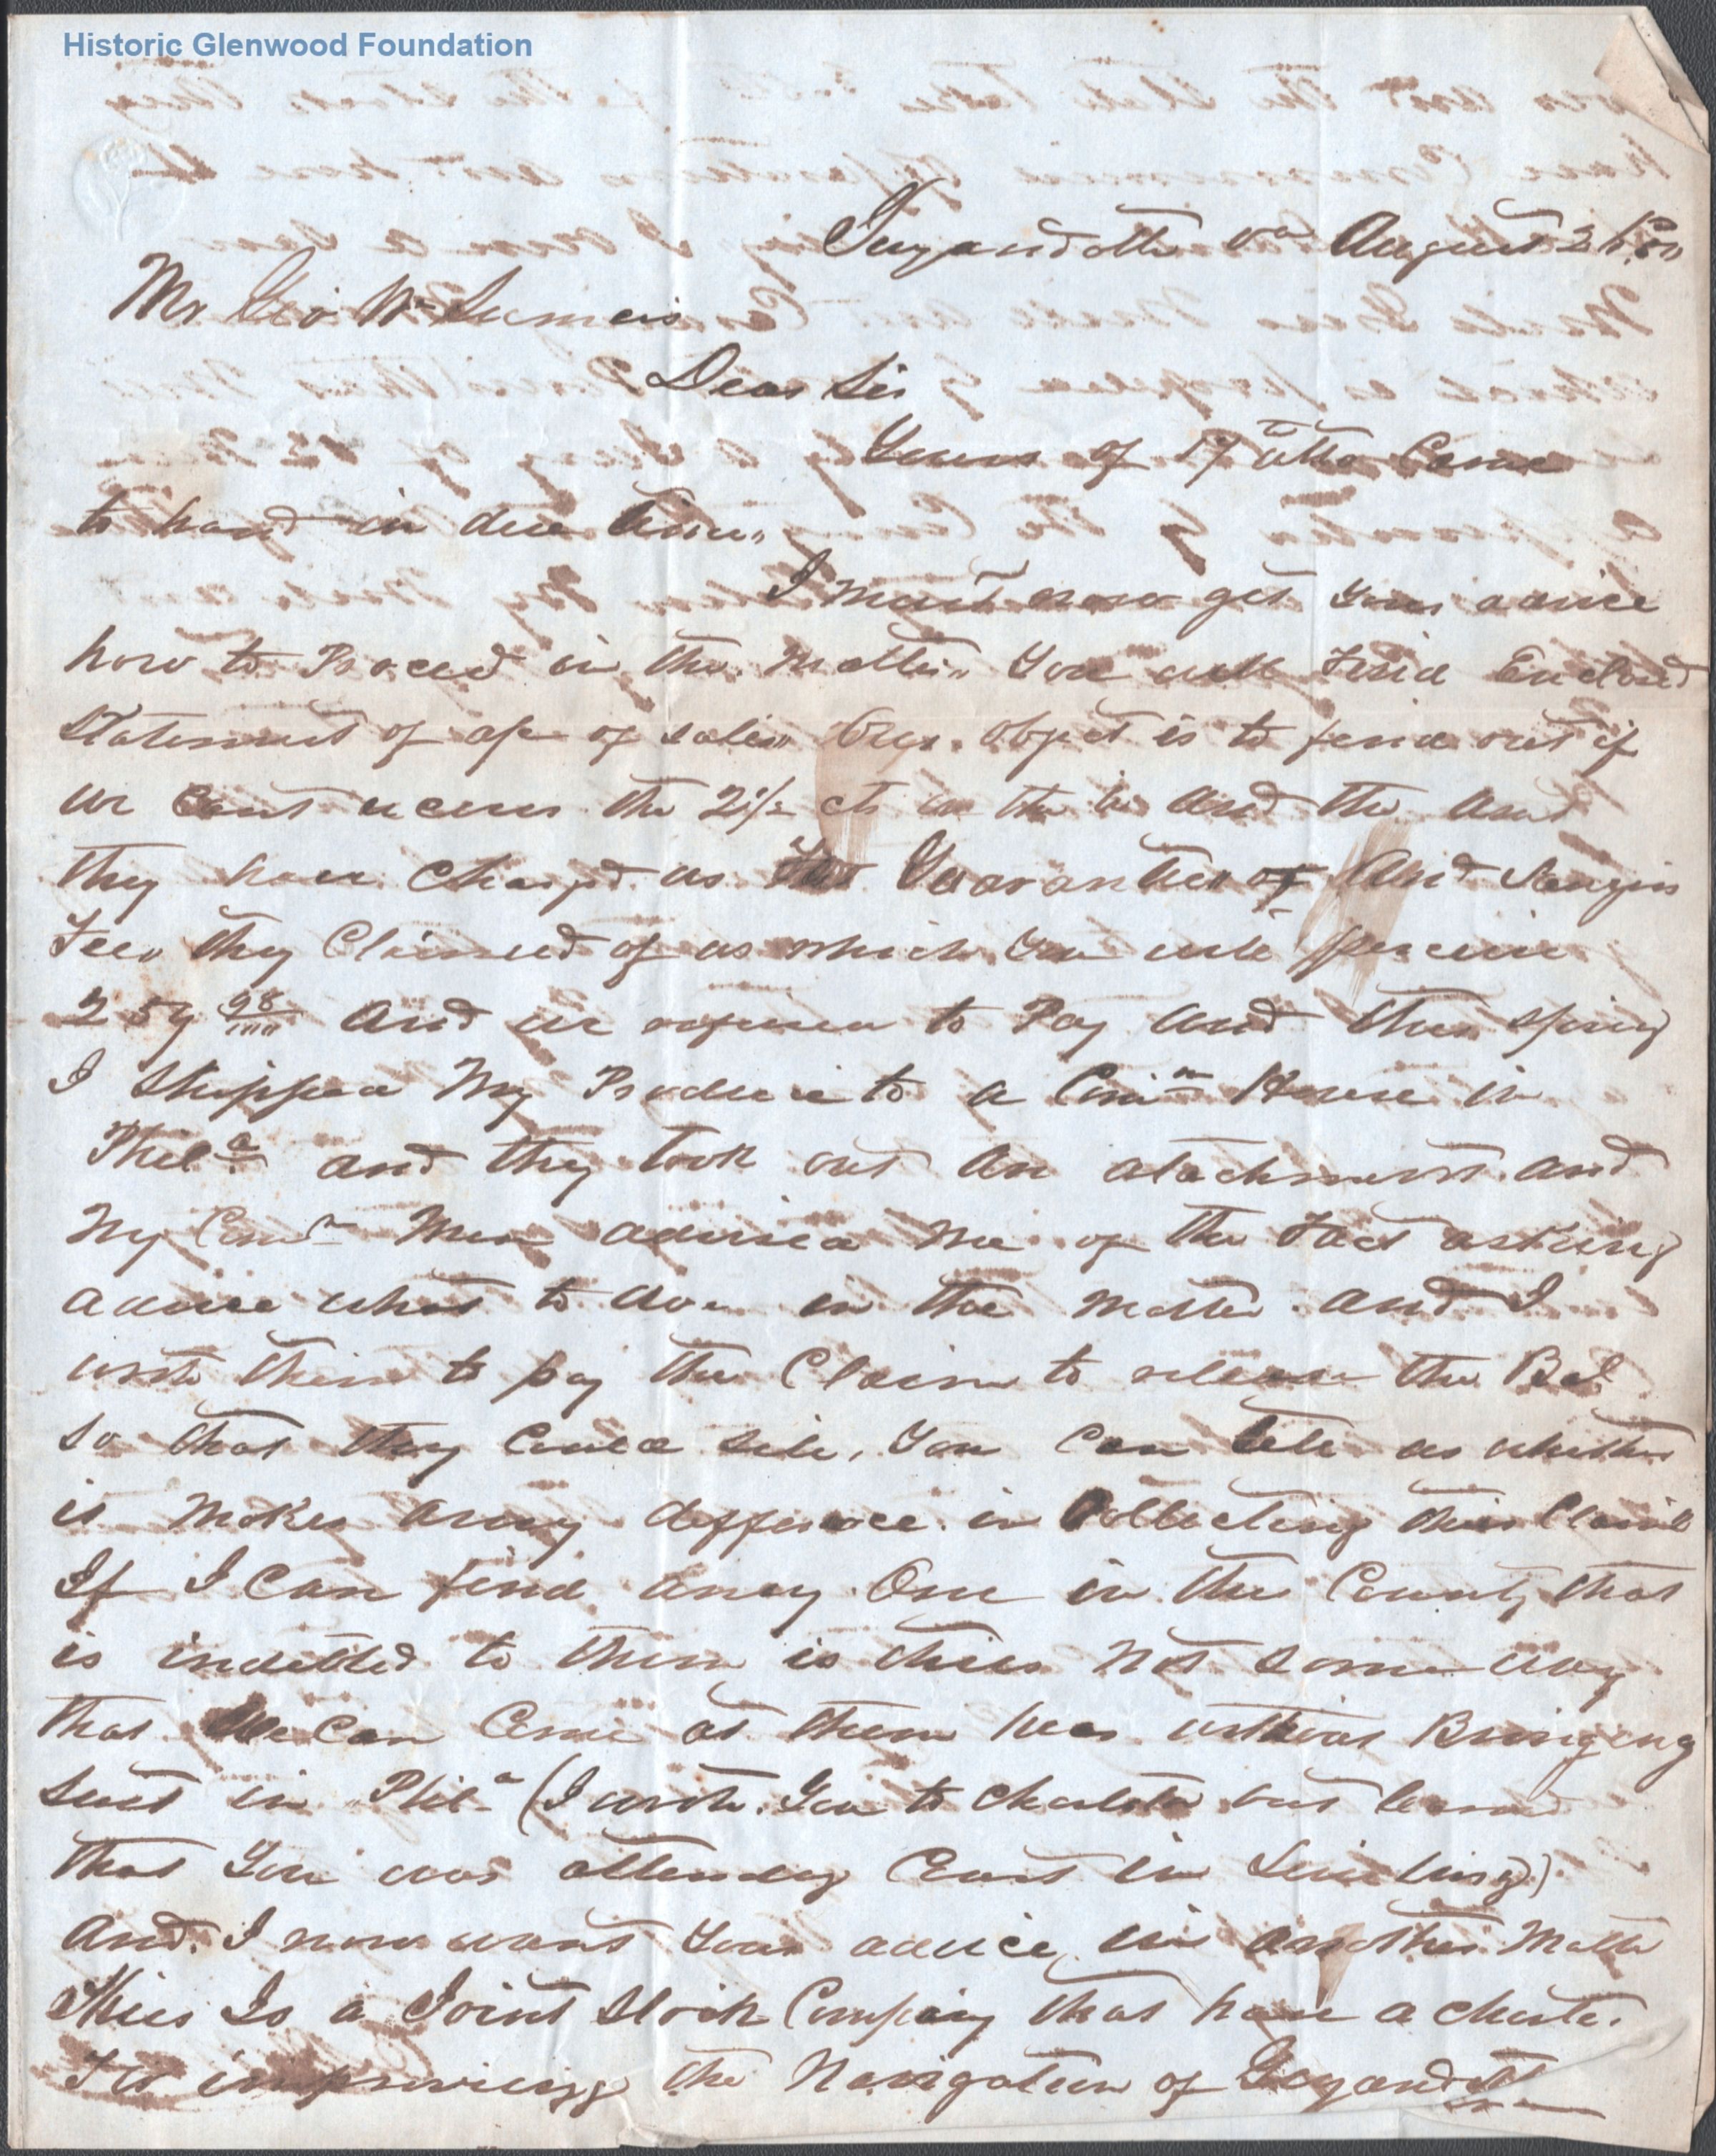 Historic Glenwood Foundation
Guyandotte Va August 2
Mr Geo Wm Summers
Dear Sir
Yours of 17th ulto Came
to hand in due time,,
I must now get your advice
how to Proceed in the matter,, You will find Enclosed
Statement of a/c of sales,, Our object is to find out if
we cant the 2 1/2 cts in the and the amt
they have Charged us Guarantee and
Fees they Claimed of us which you will perceive
259 98/100 and we refused to Pay and this spring
I Shipped My Produce to a Comn House in
Phila and they took out an atachment and
My Comn Men advised me of the Fact asking
advice what to do in the matter and I
wrote them to pay the Claim to release the Bal
so that they Could sell, You Can tell us whether
it makes anny defference in Collecting this Claim
If I Can find anny One in the County that
is indetted to them is thier not some way
that We Can Come at them hear without Bringing
suit in Phila (I wrote You to Charleston but learned
that You was attending Court in Lewisburg)
and I now want your advice in another Matter
Thier Is a Joint Stock Company that have a charter
For improving the Navigation of Guyandotte